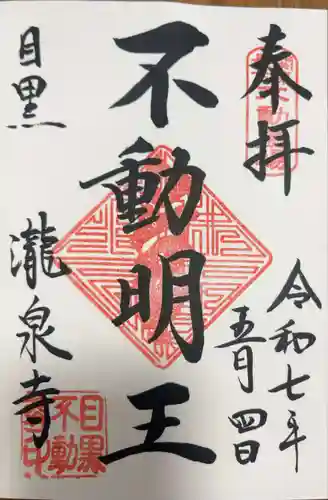 奉拝
令和七年
五月四日
不動明王
目黒
瀧泉寺
目黒
不動